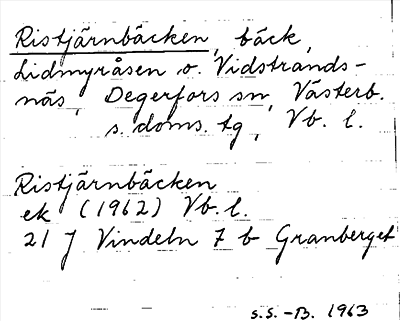 Ristjärnbäcken, bäck,
Lidmyråsen o. Vidstrands-
näs, Degerfors sn, Västerb.
s. doms. tg, Vb. l.
Ristjärnbäcken
ek (1962) Vb. l.
21 J Vindeln 7 b Granberget
s.s.-B. 1963